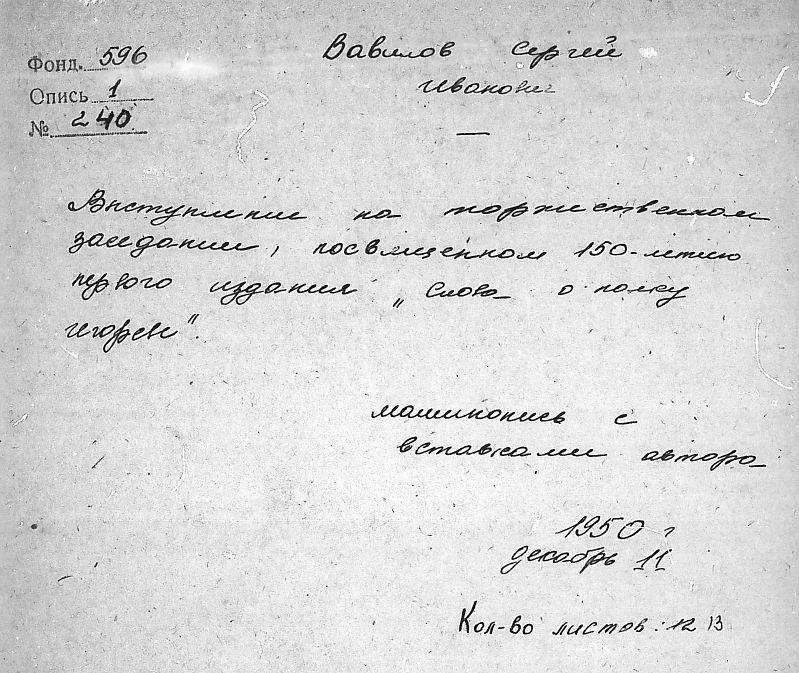 Фонд. 596
Опись 1
№ 240
Вавилов Сергей
Иванович
Выступление на торжественном
заседании, посвященном 150-летию
первого издания „Слова о полку
Игореве".
машинопись с
вставками автора
1950 г
декабрь 11
Кол-во листов: 12 13